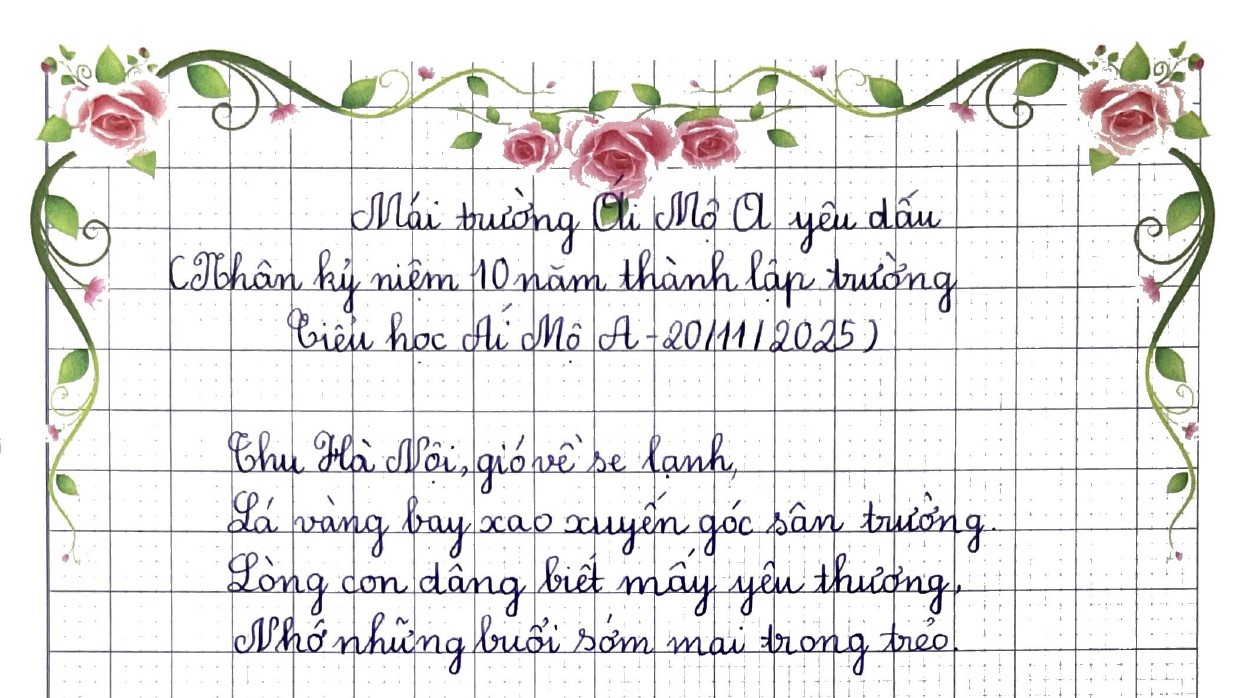 Mái trường Ái Mộ A yêu dấu
(Nhân kỷ niệm 10 năm thành lập trường
Tiểu học Ái Mộ A - 20/11/2025)
Thu Hà Nội, gió về se lạnh,
Lá vàng bay xao xuyến góc sân trường.
Lòng con dâng biết mấy yêu thương,
Nhớ những buổi sớm mai trong trẻo.